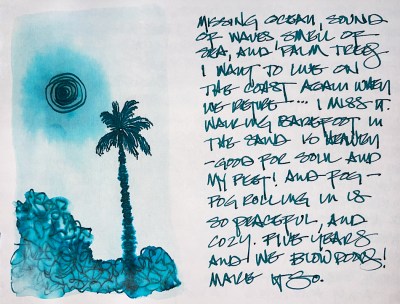 MISSING OCEAN, SOUND
OF WAVES SMELL OF
SEA, AND PALM TREES
I WANT TO LIVE ON
THE COAST AGAIN WHEN
WE RETIRE - ... I MISS IT.
WALKING BAREFOOT IN
THE SAND IS HEAVEN
- GOOD FOR SOUL AND
MY FEET! AND FOG -
FOG ROLLING IN IS
SO PEACEFUL, AND
COZY. FIVE YEARS
AND WE BLOW DOORS!
MAKE IT SO.